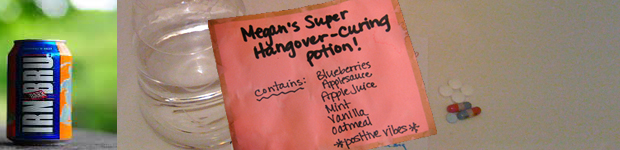 IRN-BRU
BARR
Megan's Super
Hangover-Curing
Potion!
contains: Blueberries
Applesauce
Apple Juice
Mint
Vanilla
Oatmeal
*positive vibes*